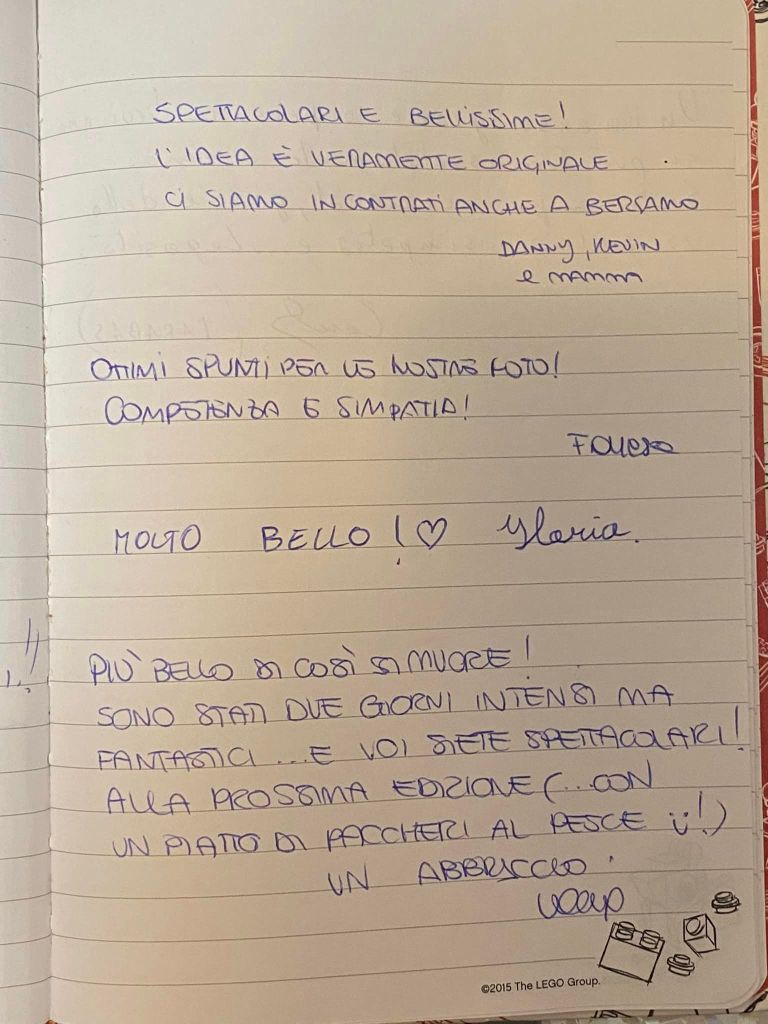 SPETTACOLARI E BELLISSIME!
L'IDEA È VERAMENTE ORIGINALE
CI SIAMO INCONTRATI ANCHE A BERGAMO
DANNY, KEVIN
e MAMMA
OTTIMI SPUNTI PER LE NOSTRE FOTO!
COMPETENZA E SIMPATIA!
MOLTO BELLO! ♡ Ylaria.
PIÙ BELLO DI COSÌ SI MUORE!
SONO STATI DUE GIORNI INTENSI MA
FANTASTICI ... E VOI SIETE SPETTACOLARI!
ALLA PROSSIMA EDIZIONE (... CON
UN PIATTO DI PACCHERI AL PESCE ü!)
UN ABBRACCIO.
©2015 The LEGO Group.